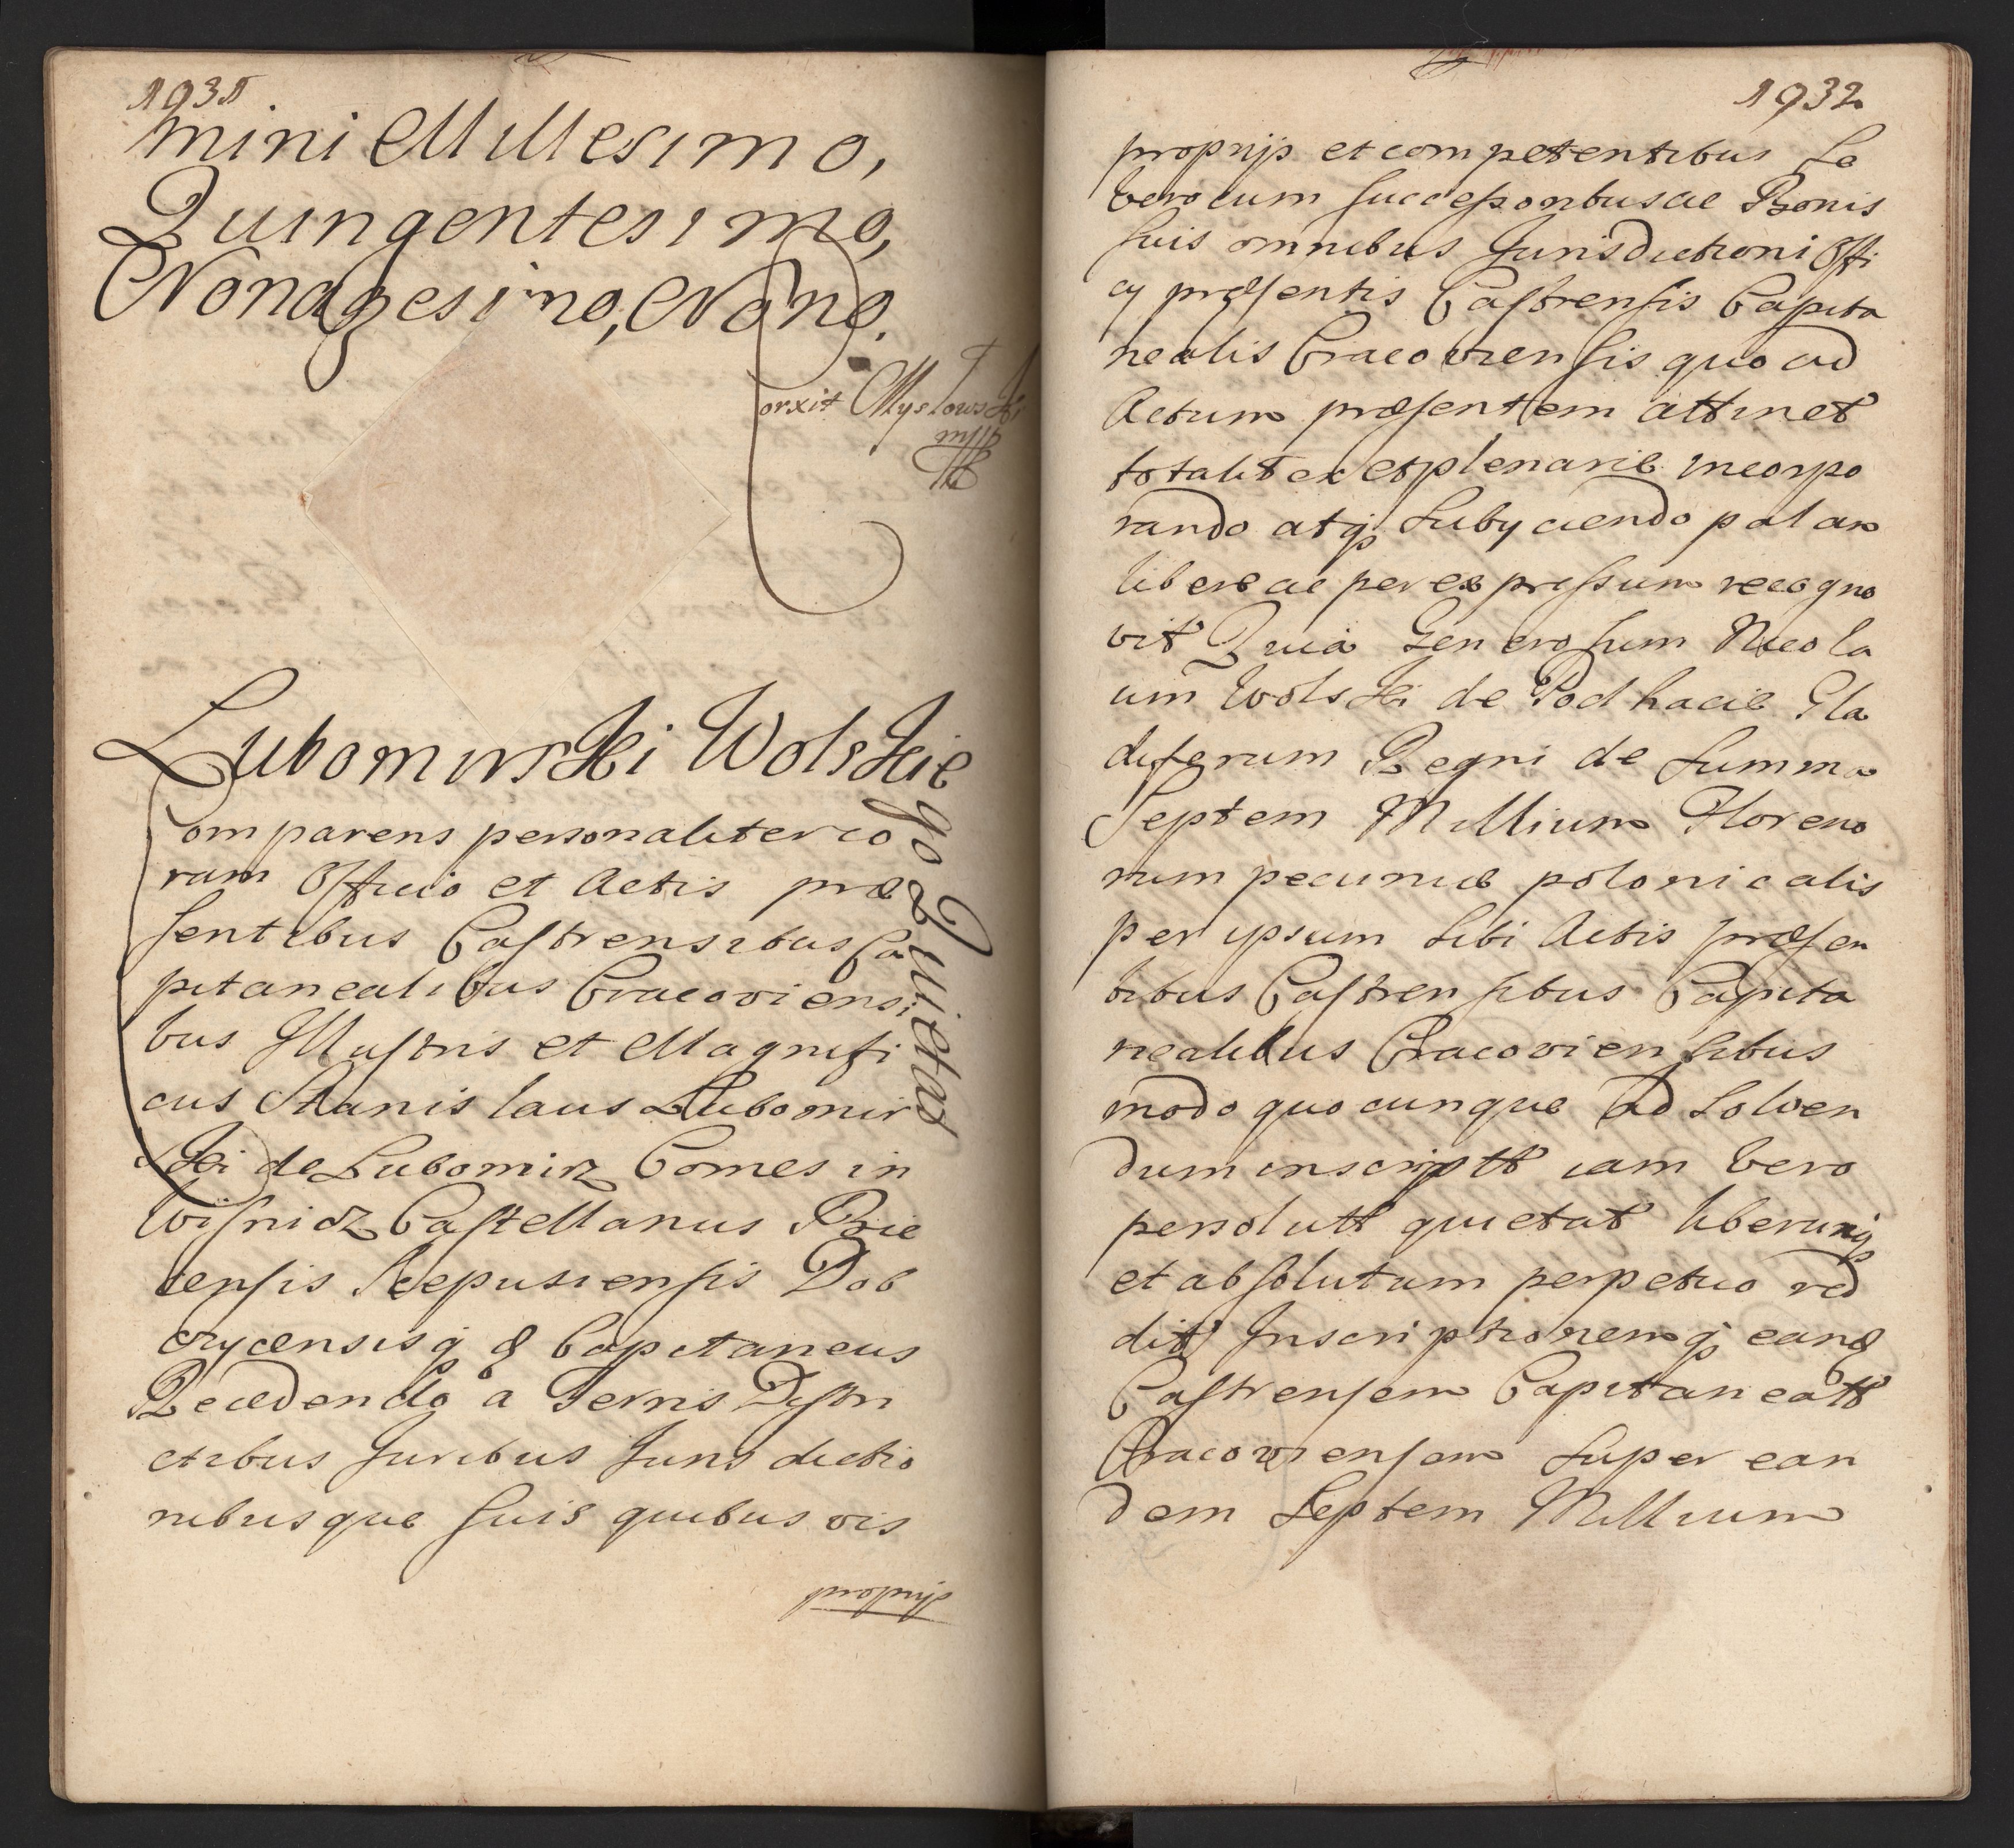 1931
mini Millesimo,
Quingentesimo,
Nonagesimo, Nono.
orxit Mysłowski
mpp
Lubomirski Wolskie
go Quietat
Comparens personaliter co
ram Officio et Actis præ
sentibus Castrensibus Ca
pitanealibus Cracoviensi
bus Illustris et Magnifi
cus Stanislaus Lubomir
ski de Lubomirz Comes in
Wisnicz Castellanus Woie
censis Scepusiensis Dob
czycensisq & Capitaneus
Recedendo a Terris Distri
ctibus Juribus Juris dictio
nibusque suis quibus vis
1932
proprijs et competentibus Se
vero cum successoribus ac Bonis
suis omnibus Jurisdictioni Offi
cij præsentis Castrensis Capita
nealis Cracoviensis quo ad
Actum præsentem attinet
totaliter et plenarie incorpo
rando atq; Subijciendo palam
libere ac per expressum recogno
vit Quia Generosum Nicola
um Wolski de Podhaice Gla
diferum Regni de Summa
Septem Millium Floreno
rum pecuniæ polonicalis
per ipsum Sibi Actis præsen
tibus Castrensibus Capita
nealibus Cracoviensibus
modo quocunque ad Solven
dum inscriptt iam vero
persolutt quietat liberumq;
et absolutum perpetuo red
dit Inscriptionemq; eand
Castrensem Capitaneatt
Cracoviensem Super ean
dem Septem Millium